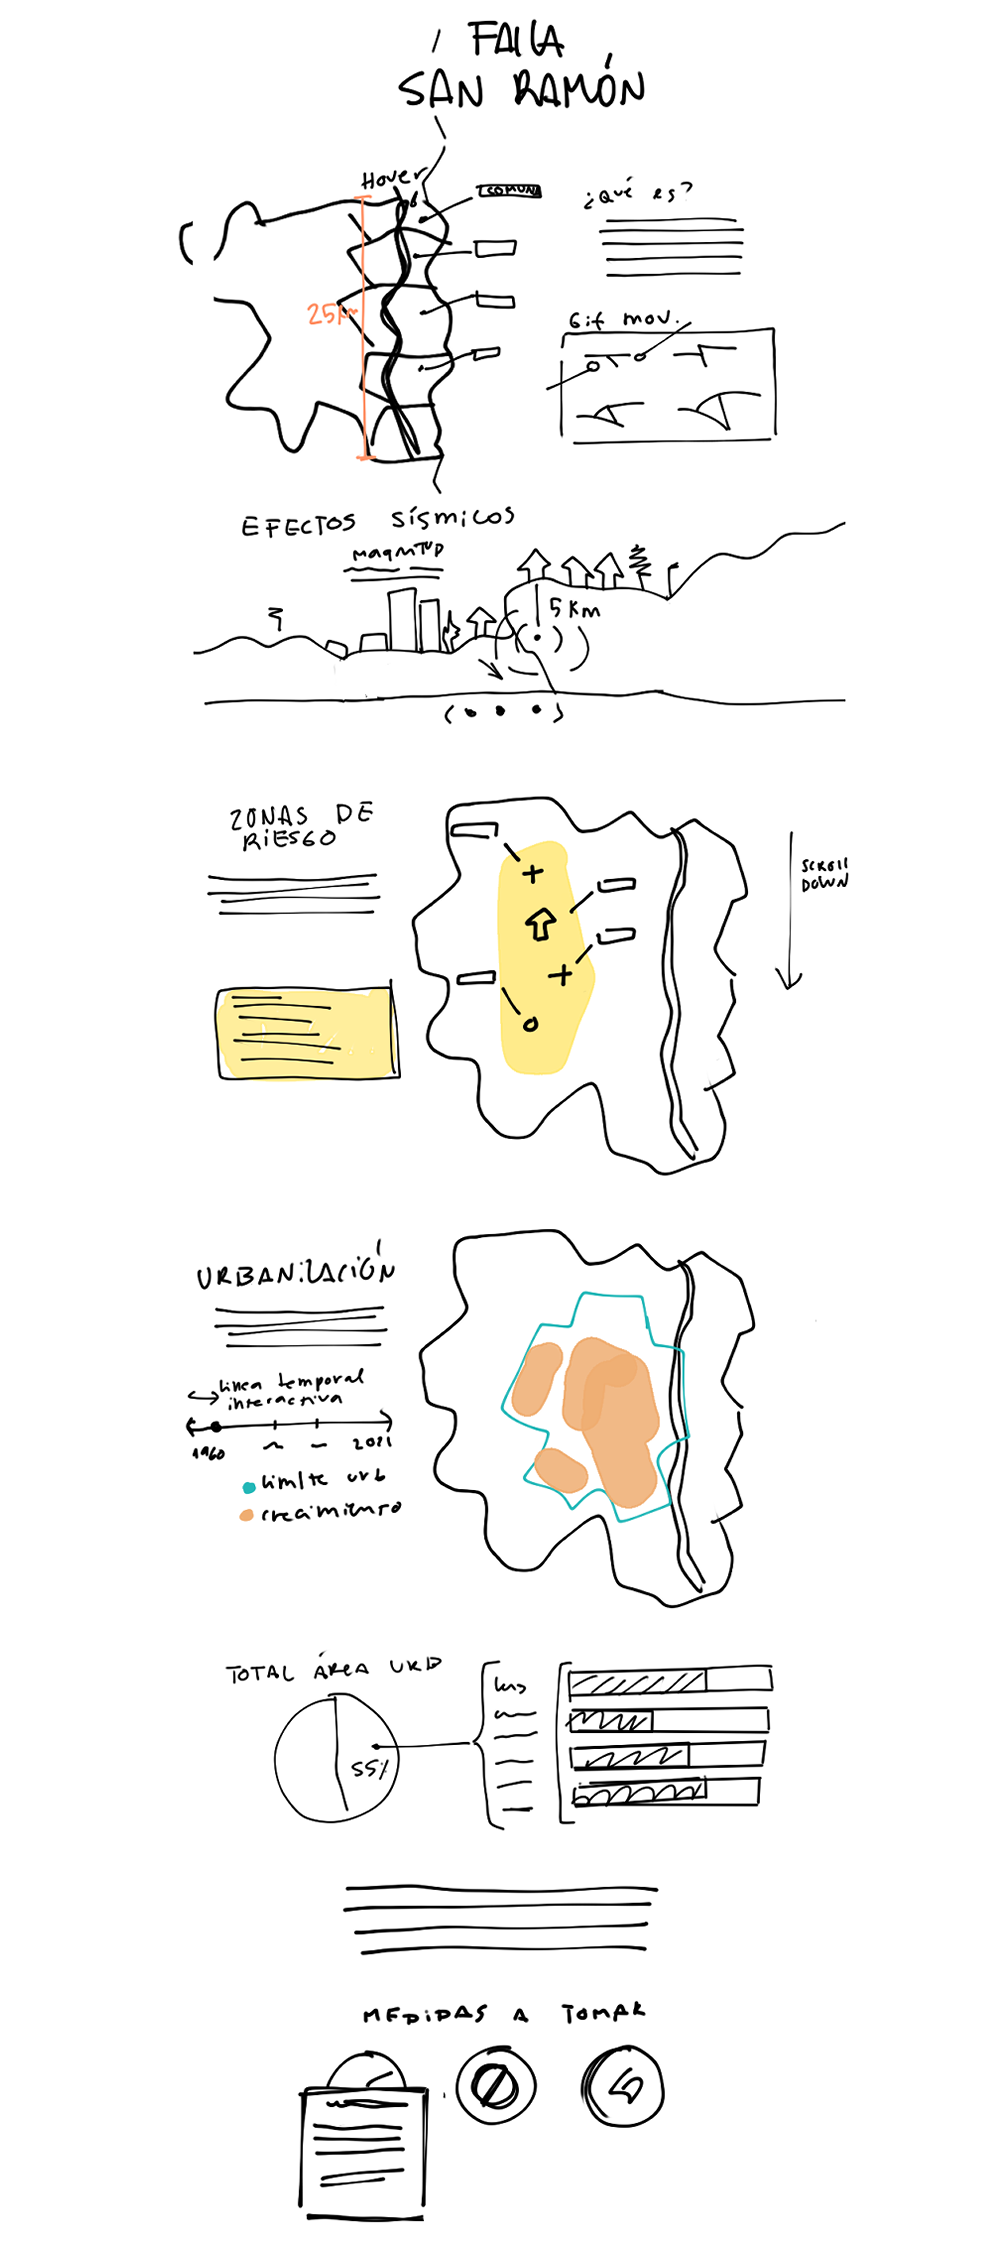 FALLA
SAN RAMÓN
Hover
COMUNA
¿Qué es?
25km
Gif mov.
EFECTOS SÍSMICOS
MAGNITUD
5 Km
ZONAS DE
RIESGO
SCROLL
DOWN
URBANIZACIÓN
linea temporal
interactiva
1960
2021
limite urb
crecimiento
TOTAL ÁREA URB
55%
MEDIDAS A TOMAR